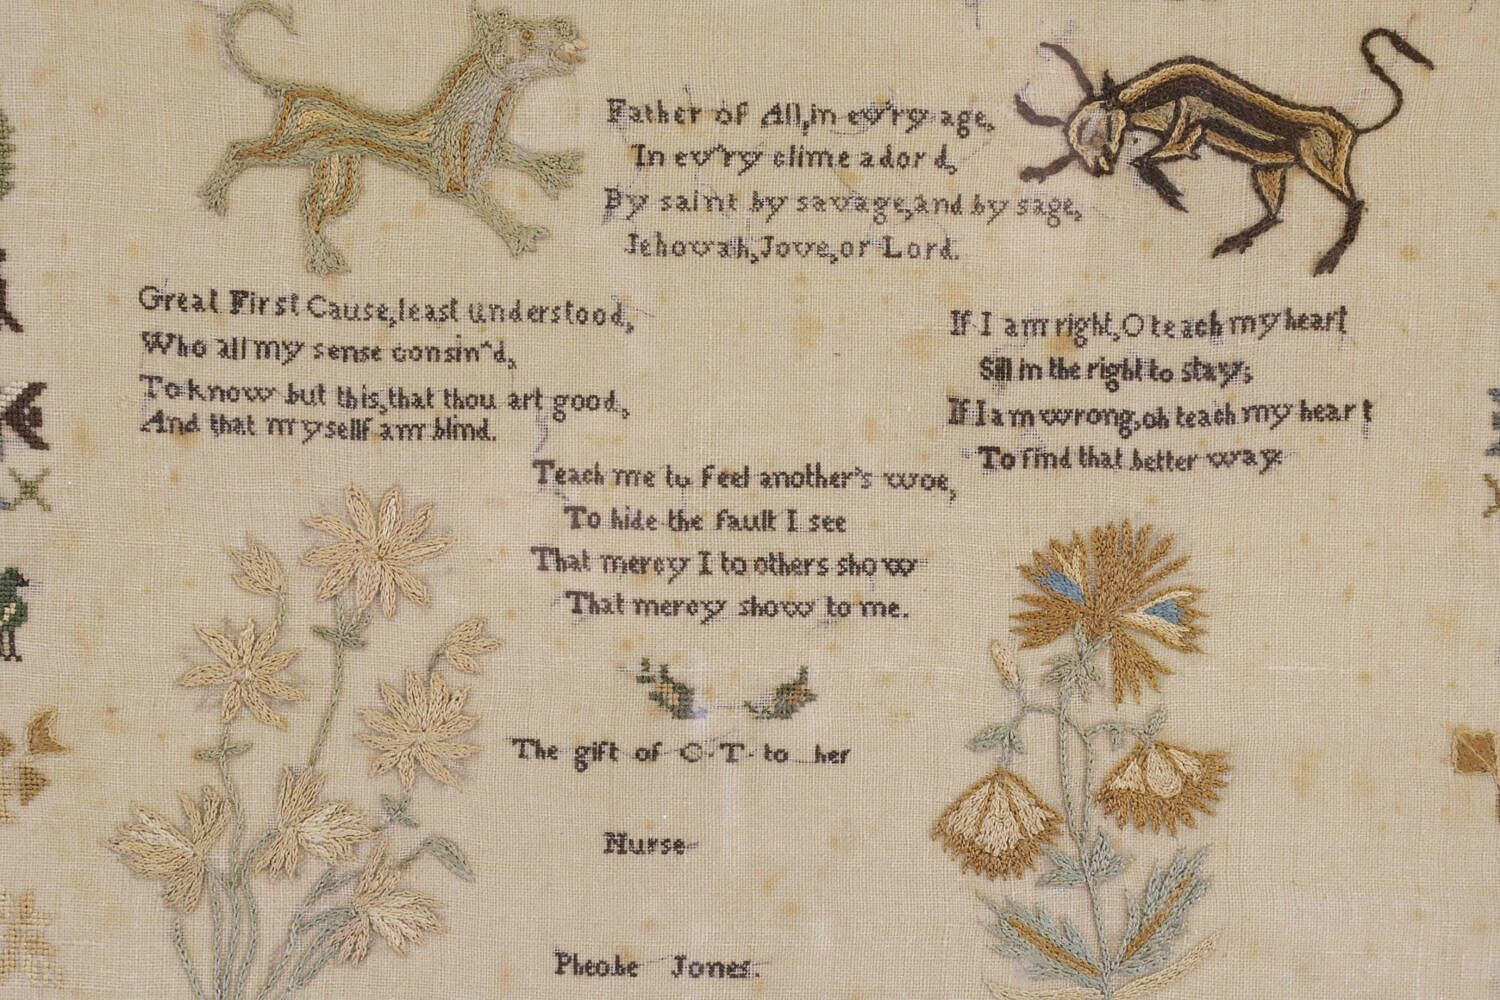 Father of All, in ev'ry age,
In ev'ry clime ador d,
By saint by savage, and by sage,
Jehovah, Jove, or Lord.
Great First Cause, least understood,
Who all my sense consin'd,
To know but this, that thou art good,
And that mysellf am blind.
If I am right, O teach my heart
Sill in the right to stay;
If I am wrong, oh teach my heart
To find that better way.
Teach me to feel another's woe,
To hide the fault I see
That mercy I to others show
That mercy show to me.
The gift of C. T. to her
Nurse
Pheobe Jones.